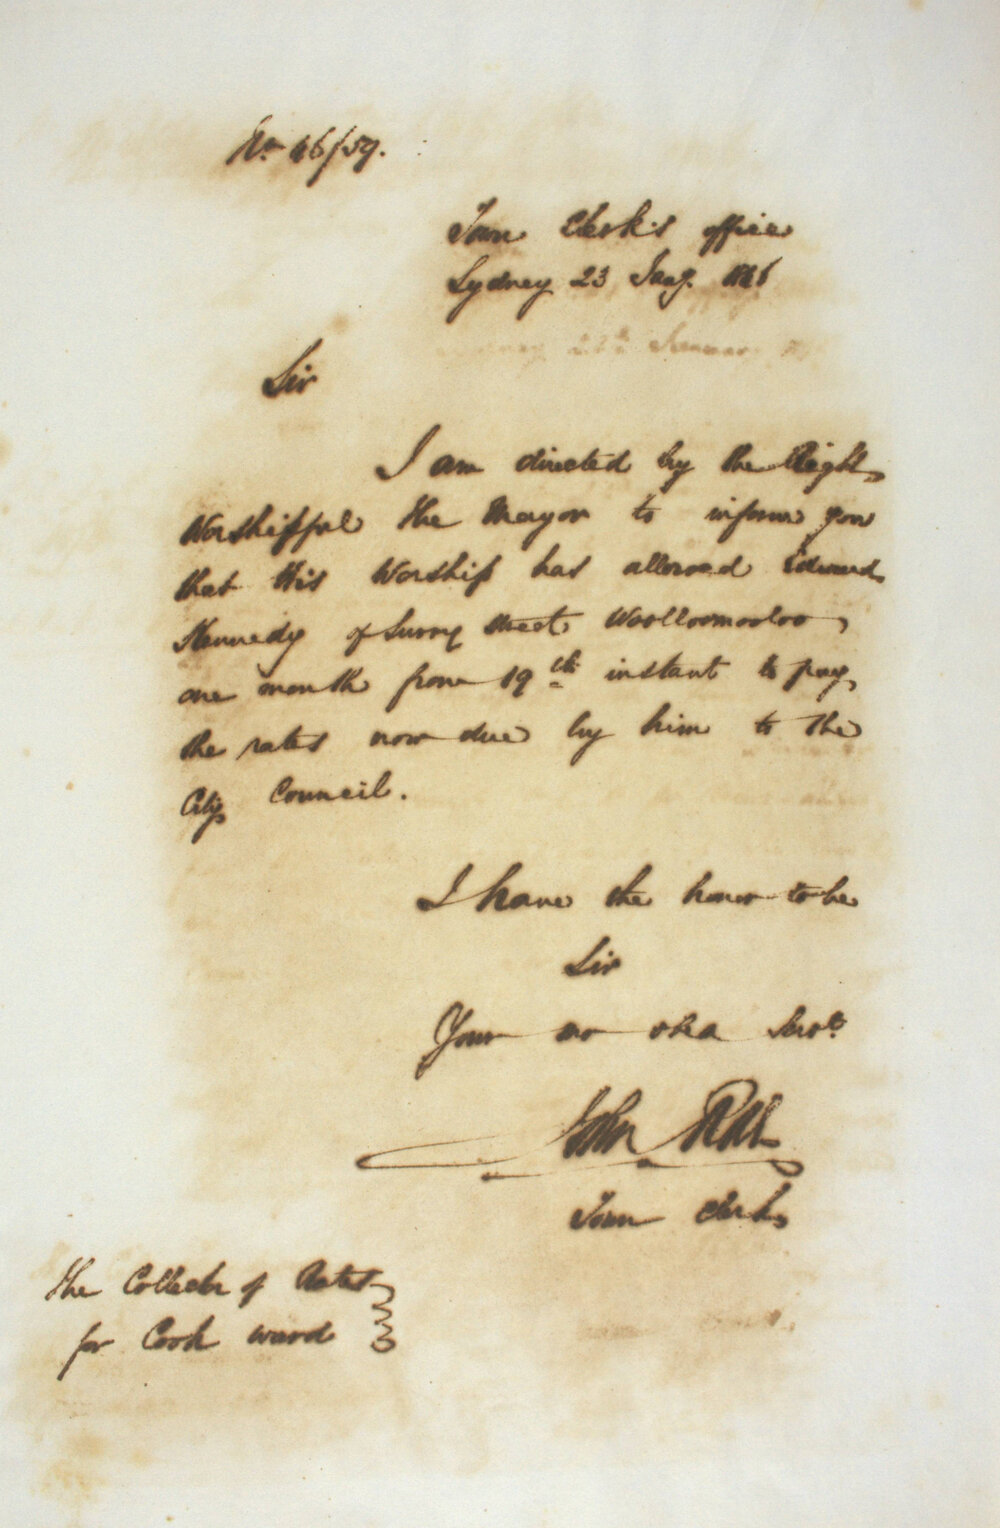 No. 46/59.
Town Clerk's office
Sydney 23 Jany. 1846
Sir
I am directed by the Right
Worshipful the Mayor to inform you
that His Worship has allowed Edward
Kennedy of Surry Street Woolloomooloo
one month from 19th instant to pay
the rates now due by him to the
City Council.
I have the honor to be
Sir
Your mo obd Servt.
John
Town Clerk
The Collector of Rates
for Cook ward